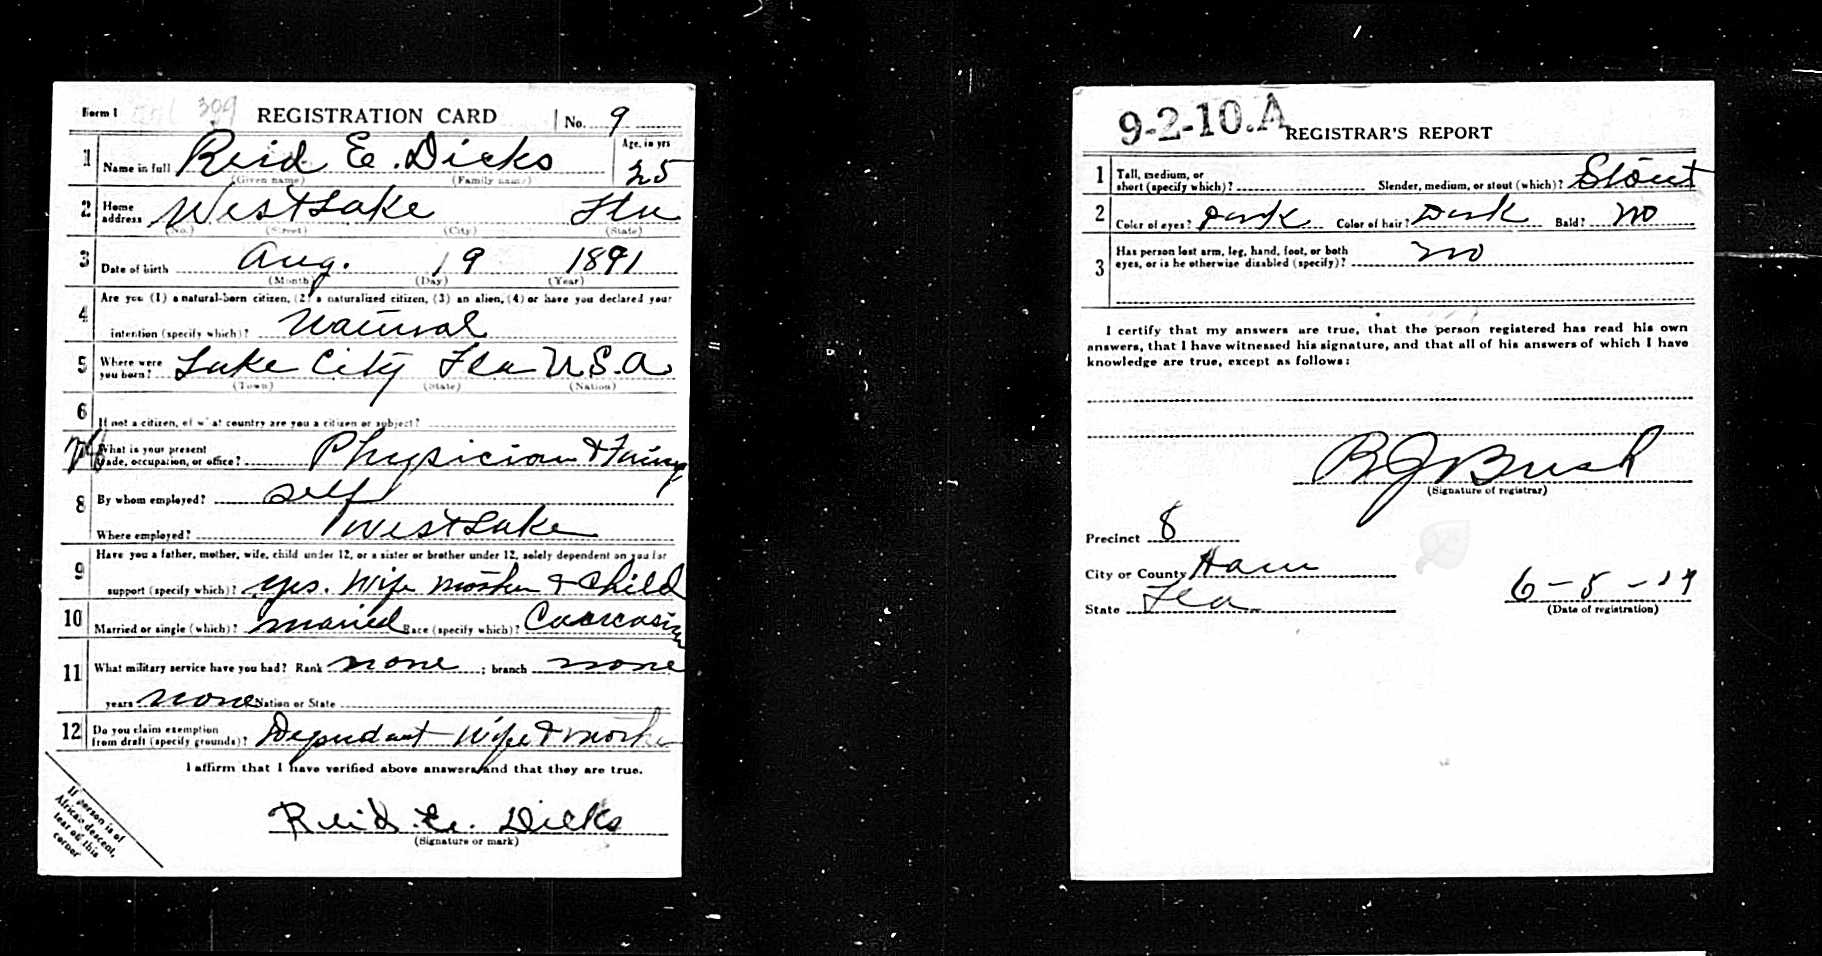 Form 1 399 REGISTRATION CARD No. 9
1 Name in full Reid E. Dicks Age, in yrs 25
(Given name) (Family name)
2 Home address West Lake Fla
(No.) (Street) (City) (State)
3 Date of birth Aug. 19 1891
(Month) (Day) (Year)
4 Are you (1) a natural-born citizen, (2) a naturalized citizen, (3) an alien, (4) or have you declared your
intention (specify which)? Natural
5 Where were you born? Lake City Fla U.S.A
(Town) (State) (Nation)
6 If not a citizen, of what country are you a citizen or subject?
What is your present trade, occupation, or office? Physician &
8 By whom employed? Self
Where employed? West Lake
9 Have you a father, mother, wife, child under 12, or a sister or brother under 12, solely dependent on you for
support (specify which)? yes. Wife Mother & Child
10 Married or single (which)? Married Race (specify which)? Caucasian
11 What military service have you had? Rank none ; branch none
years none Nation or State
12 Do you claim exemption from draft (specify grounds)? Dependant Wife & Mother
I affirm that I have verified above answers and that they are true.
Reid. E. Dicks
(Signature or mark)
If person is of
African descent,
tear off this
corner
9-2-10.A REGISTRAR'S REPORT
1 Tall, medium, or short (specify which)? Slender, medium, or stout (which)? Stout
2 Color of eyes? Dark Color of hair? Dark Bald? no
3 Has person lost arm, leg, hand, foot, or both
eyes, or is he otherwise disabled (specify)? no
I certify that my answers are true, that the person registered has read his own
answers, that I have witnessed his signature, and that all of his answers of which I have
knowledge are true, except as follows:
R J Bush
(Signature of registrar)
Precinct 8
City or County Ham
State Fla
6-5-17
(Date of registration)